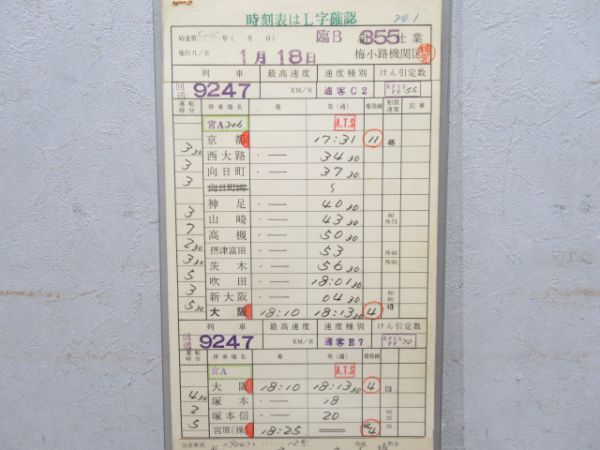 時刻表はL字確認
達第 年(月 日)
臨B 855 仕業
施行月/日 1月18日 梅小路機関区
列車 最高速度 速度種別 けん引定数
回送 9247 KM/H 通客C2 55
運転時分 停車場名 着 発(通) 着発線 制限速度 記事
宮A306 A.T.S
京都 17:31 11
3 30 西大路 ・ー 34 30
3 向日町 ・ー 37 30
3 神足 ・ー 40 30
山崎 ・ー 43 30
7 高槻 ・ー 50 30
2 30 摂津富田 ・ー 53
3 30 茨木 ・ー 56 30
5 吹田 ・ー 18:01 30
3 新大阪 ・ー 04 30
5 30 大阪 18:10 18:13 30 4
列車 最高速度 速度種別 けん引定数
回送 9247 KM/H 通客E7
運転時分 停車場名 着 発(通) 着発線
宮A A.T.S
大阪 18:10 18:13 30 4
4 30 塚本 ・ー 18
2 塚本信 ・ー 20
5 宮原(操) 18:25 4
注意事項